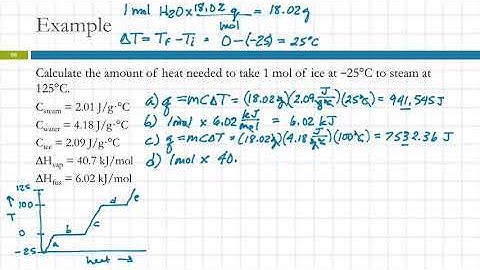 Example
1 mol H₂O × 18.02 g / mol = 18.02g
ΔT = Tf - Ti = 0-(-25) = 25°C
Calculate the amount of heat needed to take 1 mol of ice at −25°C to steam at
125°C.
Csteam = 2.01 J/g·°C
Cwater = 4.18 J/g·°C
Cice = 2.09 J/g·°C
ΔHvap = 40.7 kJ/mol
ΔHfus = 6.02 kJ/mol
a) q = mCΔT = (18.02g)(2.09 J/g°C)(25°C) = 941.545 J
b) 1mol × 6.02 kJ/mol = 6.02 kJ
c) q = mCΔT = (18.02g)(4.18 J/g°C)(100°C) = 7532.36 J
d) 1mol × 40.
125
100
T
0
-25
a
b
c
d
e
heat →